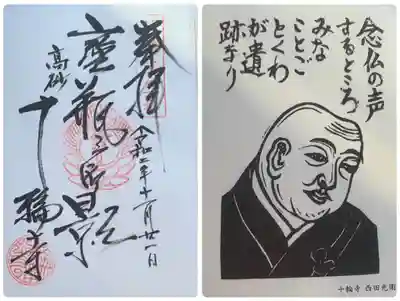 奉拝
令和二年十一月廿一日
高砂
十輪寺
念仏の声
するところ
みな
ことご
とくわ
が遺
跡なり
十輪寺 西田光衛